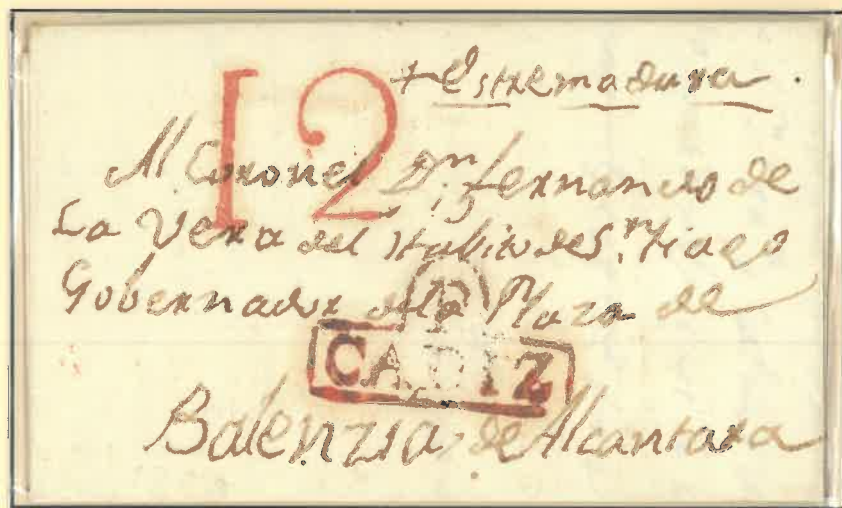 + Estremadura.
12
Al Coronel Dn. fernando de
La Vera del Habito de S.n tiago
Gobernador de la Plaza de
CADIZ
Balenzia de Alcantara